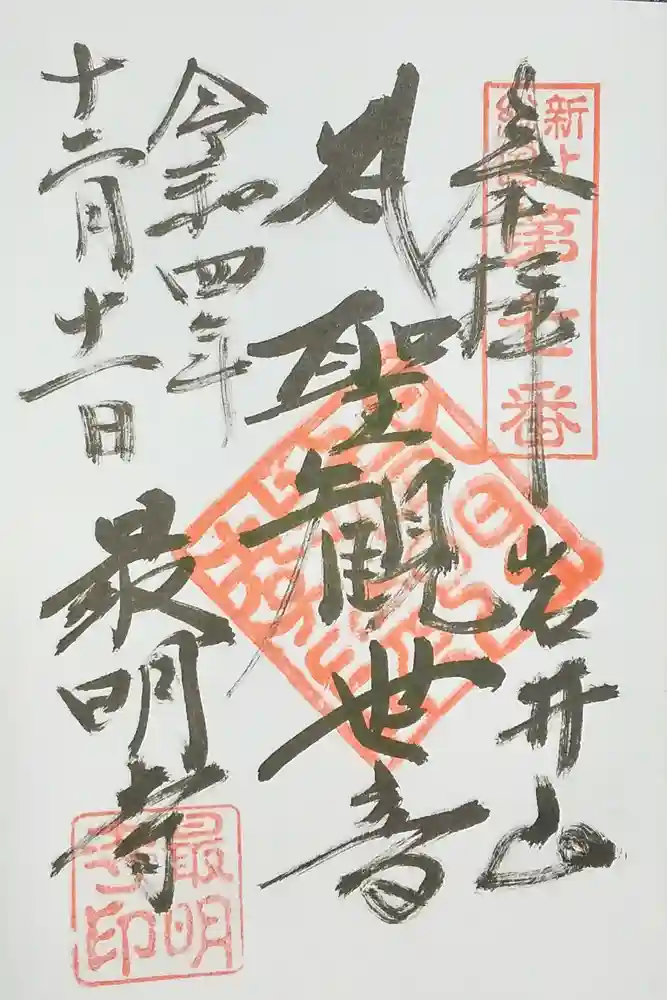 新上総国
奉拝
岩井山
聖観世音
令和四年
十二月十一日
最明寺
最明寺印